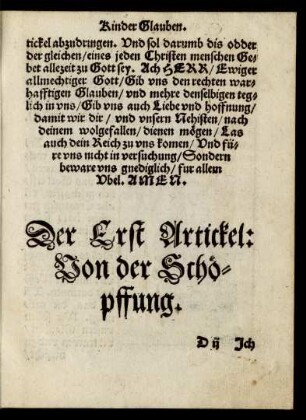 Kinder Glauben.
tickel abzudringen. Vnd sol darumb dis odder
der gleichen / eines jeden Christen menschen Ge-
bet allezeit zu Gott sey. Ach HERR / Ewiger
allmechtiger Gott / Gib vns den rechten war-
hafftigen Glauben / vnd mehre denselbigen teg-
lich in vns / Gib vns auch Liebe vnd hoffnung /
damit wir dir / vnd vnsern Nehisten / nach
deinem wolgefallen / dienen mögen / Las
auch dein Reich zu vns komen / Vnd fü-
re vns nicht in versuchung / Sondern
beware vns gnediglich / fur allem
Vbel. AMEN.
Der Erst Artickel:
Von der Schö-
pffung.
D ij Ich